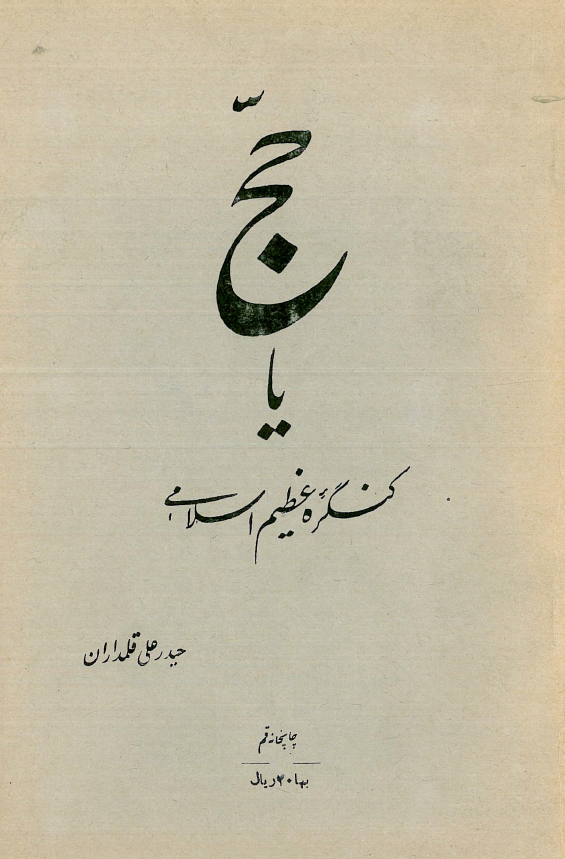 حجّ
یا
کنگرهٔ عظیم اسلامی
حیدر علی قلمداران
چاپخانه قم
بها ۳۰ ریال